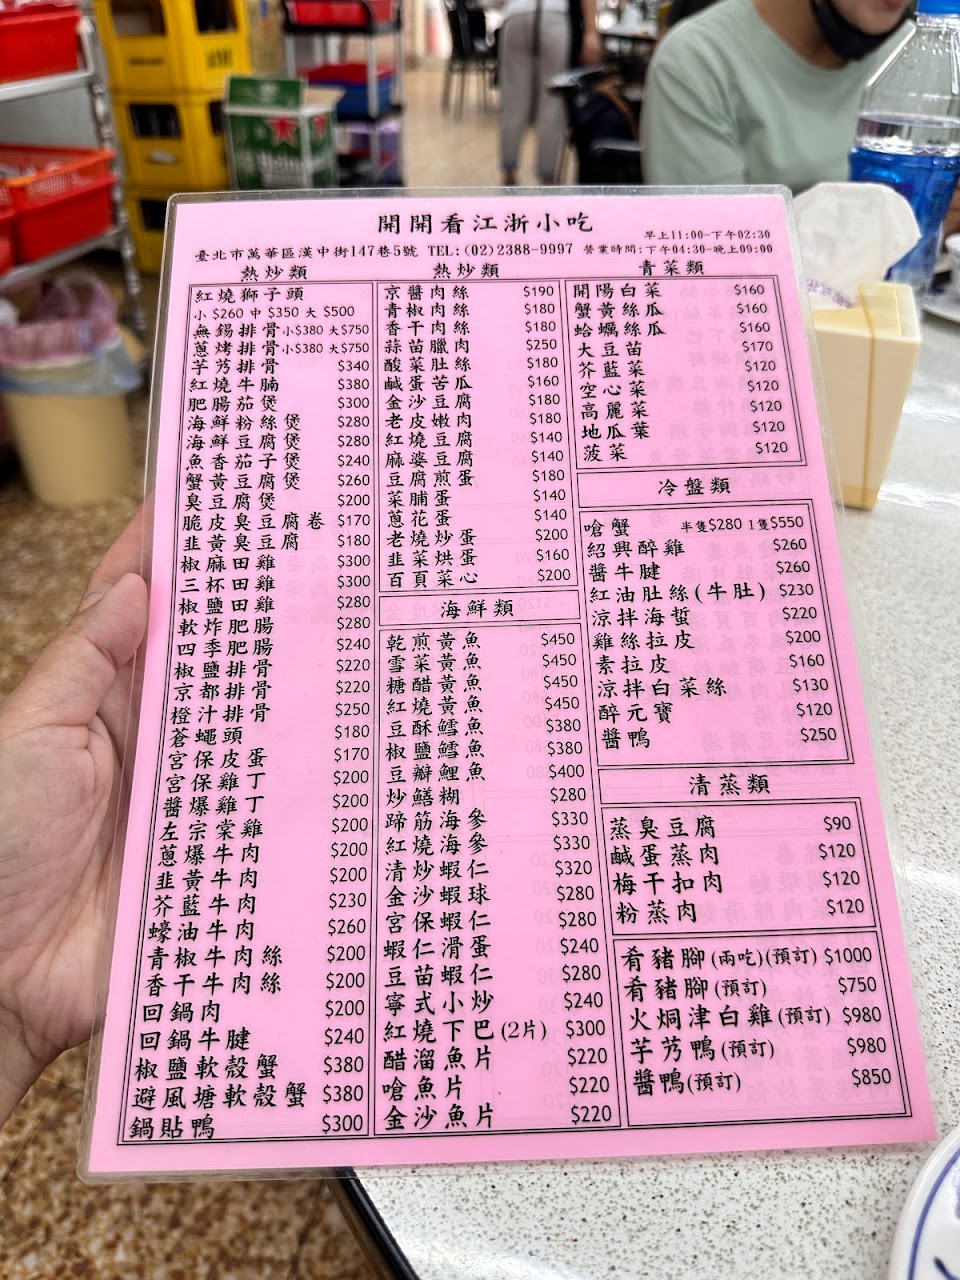 開開看江浙小吃
早上11:00-下午02:30
臺北市萬華區漢中街147巷5號 TEL:(02)2388-9997 營業時間:下午04:30-晚上09:00
熱炒類
紅燒獅子頭
小 $260 中 $350 大 $500
無錫排骨 小$380 大$750
蔥烤排骨 小$380 大$750
芋艿排骨 $340
紅燒牛腩 $380
肥腸茄煲 $300
海鮮粉絲煲 $280
海鮮豆腐煲 $280
魚香茄子煲 $240
蟹黃豆腐煲 $260
臭豆腐煲 $200
脆皮臭豆腐卷 $170
韭黃臭豆腐 $180
椒麻田雞 $300
三杯田雞 $300
椒鹽田雞 $280
軟炸肥腸 $280
四季肥腸 $240
椒鹽排骨 $220
京都排骨 $220
橙汁排骨 $250
蒼蠅頭 $180
宮保皮蛋 $170
宮保雞丁 $200
醬爆雞丁 $200
左宗棠雞 $200
蔥爆牛肉 $200
韭黃牛肉 $200
芥藍牛肉 $230
蠔油牛肉 $260
青椒牛肉絲 $200
香干牛肉絲 $200
回鍋肉 $200
回鍋牛腱 $240
椒鹽軟殼蟹 $380
避風塘軟殼蟹 $380
鍋貼鴨 $300
熱炒類
京醬肉絲 $190
青椒肉絲 $180
香干肉絲 $180
蒜苗臘肉 $250
酸菜肚絲 $180
鹹蛋苦瓜 $160
金沙豆腐 $180
老皮嫩肉 $180
紅燒豆腐 $140
麻婆豆腐 $140
豆腐煎蛋 $180
菜脯蛋 $140
蔥花蛋 $140
老燒炒蛋 $200
韭菜烘蛋 $160
百頁菜心 $200
海鮮類
乾煎黃魚 $450
雪菜黃魚 $450
糖醋黃魚 $450
紅燒黃魚 $450
豆酥鱈魚 $380
椒鹽鱈魚 $380
豆瓣鯉魚 $400
炒鱔糊 $280
蹄筋海參 $330
紅燒海參 $330
清炒蝦仁 $320
金沙蝦球 $280
宮保蝦仁 $280
蝦仁滑蛋 $240
豆苗蝦仁 $280
寧式小炒 $240
紅燒下巴(2片) $300
醋溜魚片 $220
嗆魚片 $220
金沙魚片 $220
青菜類
開陽白菜 $160
蟹黃絲瓜 $160
蛤蠣絲瓜 $160
大豆苗 $170
芥藍菜 $120
空心菜 $120
高麗菜 $120
地瓜葉 $120
菠菜 $120
冷盤類
嗆蟹 半隻$280 1隻$550
紹興醉雞 $260
醬牛腱 $260
紅油肚絲(牛肚) $230
涼拌海蜇 $220
雞絲拉皮 $200
素拉皮 $160
涼拌白菜絲 $130
醉元寶 $120
醬鴨 $250
清蒸類
蒸臭豆腐 $90
鹹蛋蒸肉 $120
梅干扣肉 $120
粉蒸肉 $120
肴豬腳(兩吃)(預訂) $1000
肴豬腳(預訂) $750
火焗津白雞(預訂) $980
芋艿鴨(預訂) $980
醬鴨(預訂) $850
Heineken